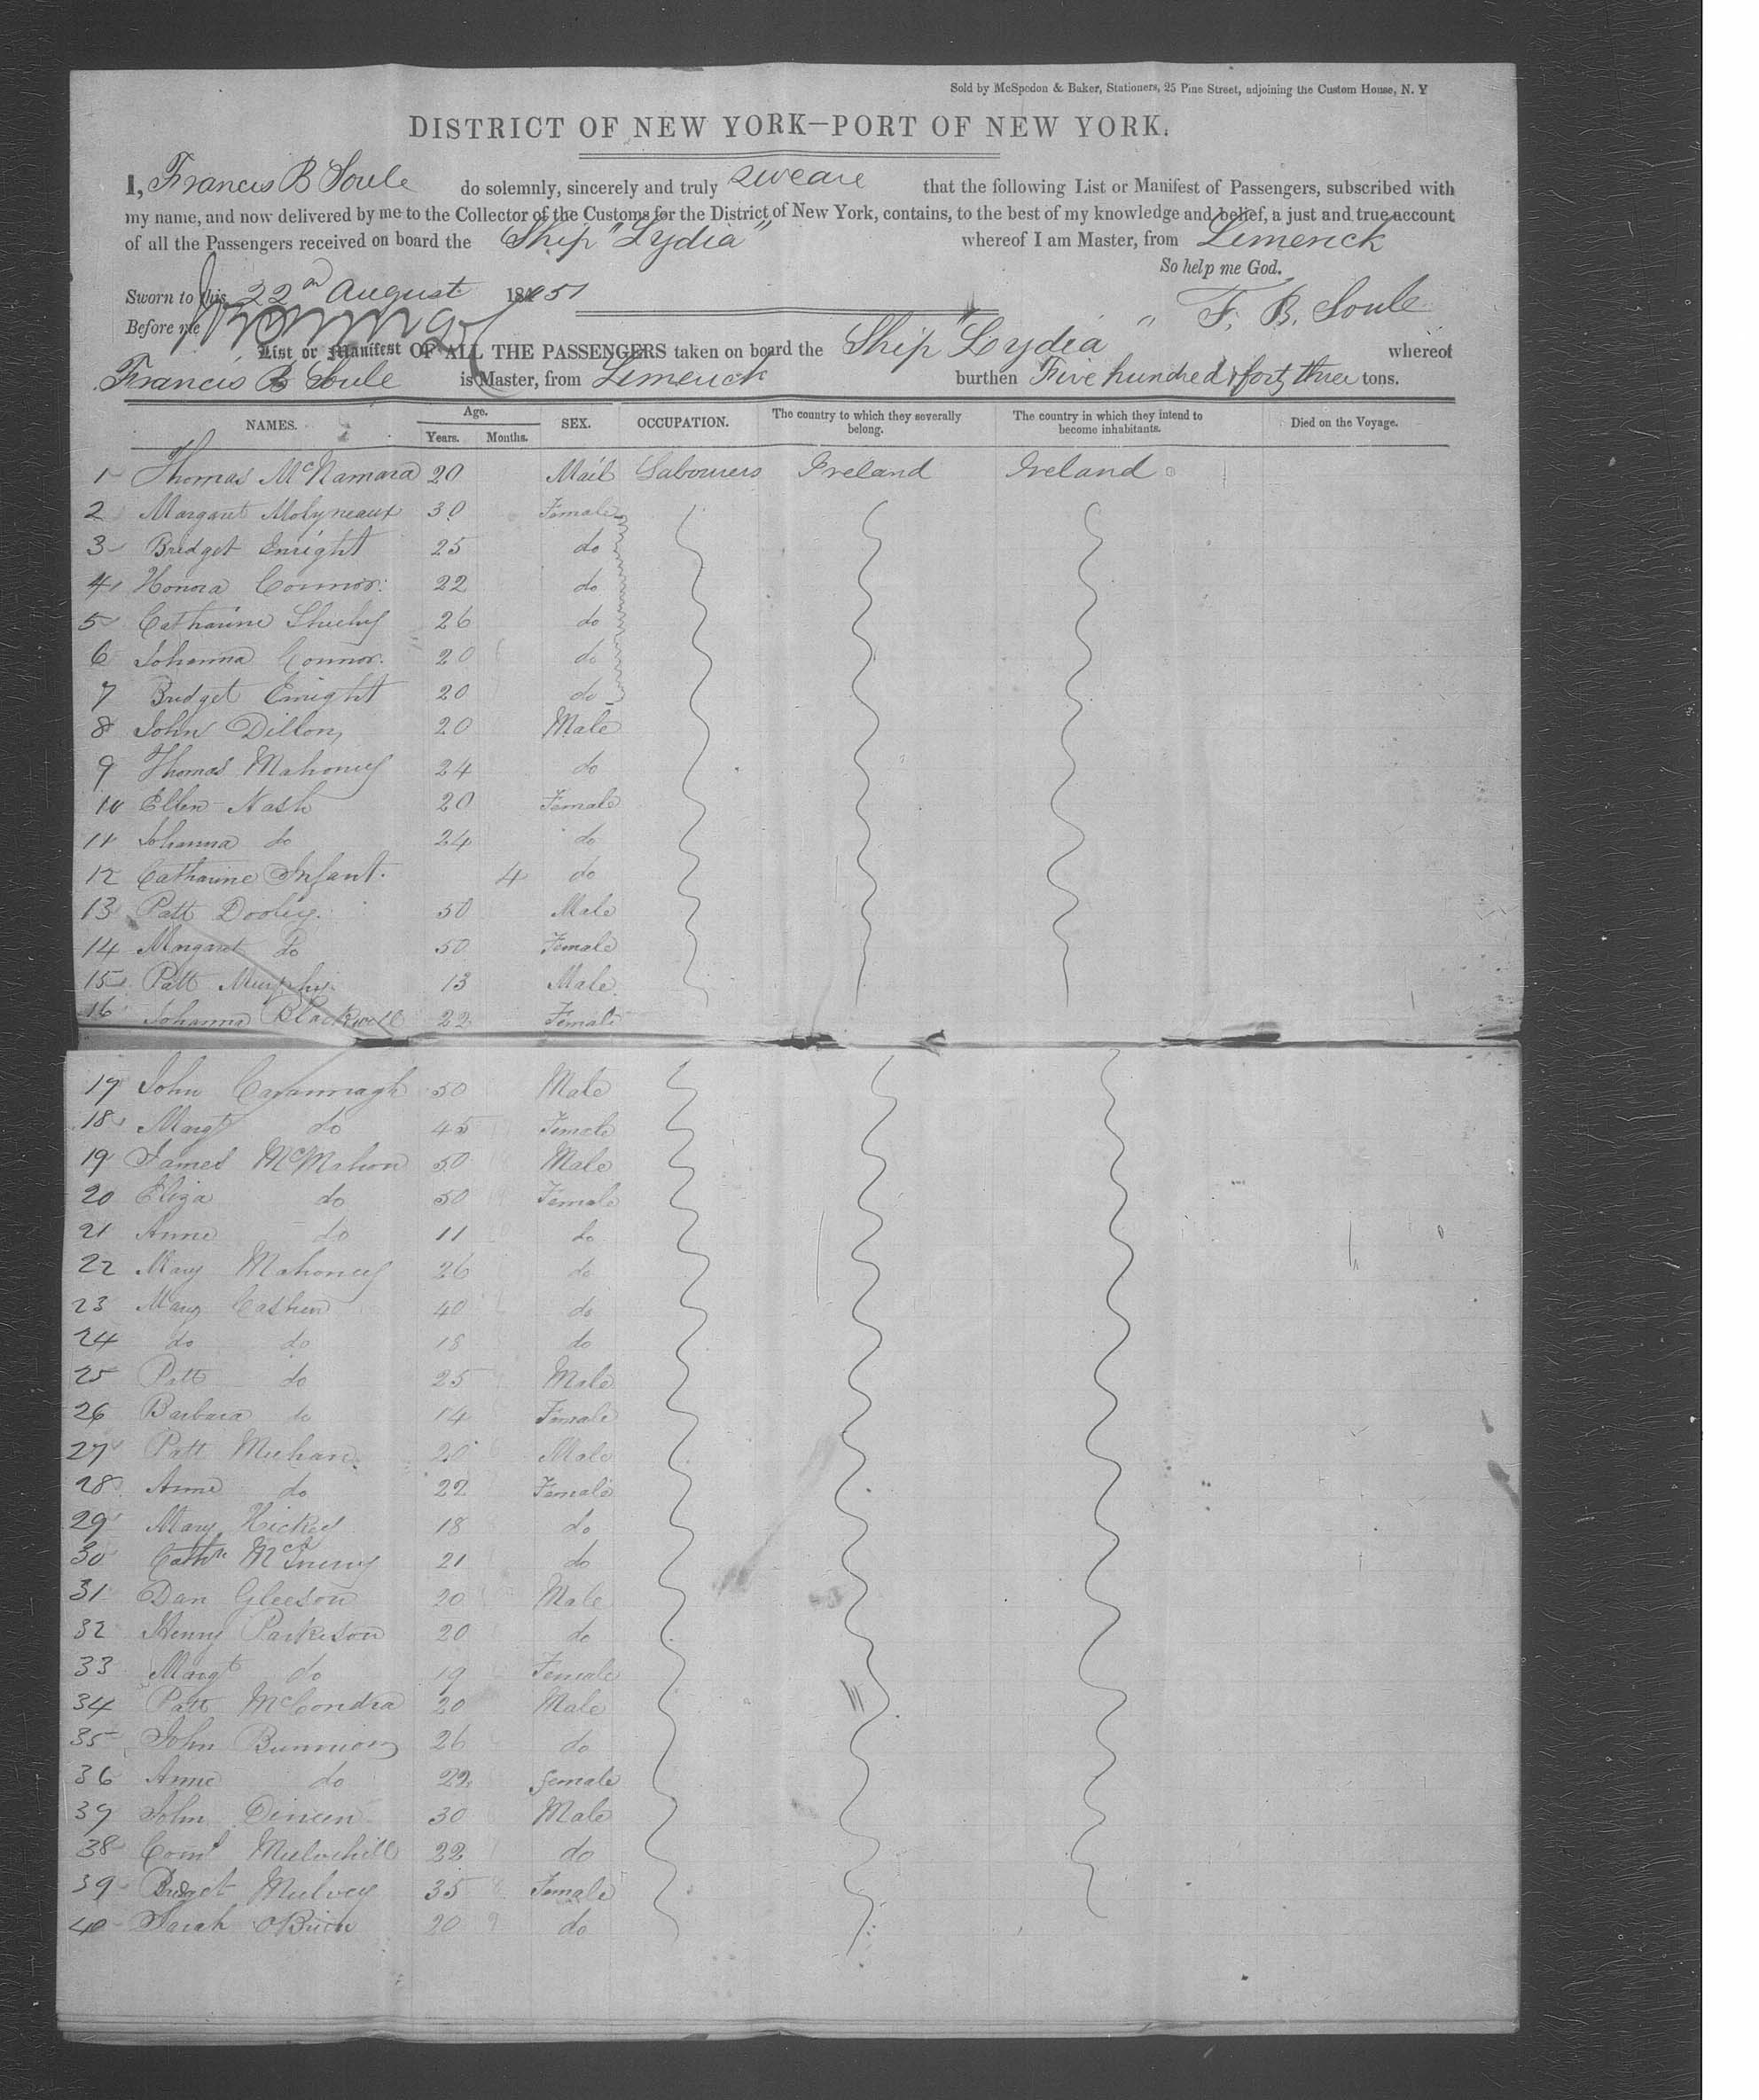 Sold by McSpedon & Baker, Stationers, 25 Pine Street, adjoining the Custom House, N. Y
DISTRICT OF NEW YORK—PORT OF NEW YORK.
I, Francis B Soule do solemnly, sincerely and truly sweare that the following List or Manifest of Passengers, subscribed with
my name, and now delivered by me to the Collector of the Customs for the District of New York, contains, to the best of my knowledge and belief, a just and true account
of all the Passengers received on board the Ship "Lydia" whereof I am Master, from Limerick
So help me God.
Sworn to this 22nd August 1851 F. B. Soule
Before me
List or Manifest OF ALL THE PASSENGERS taken on board the Ship "Lydia" whereof
Francis B Soule is Master, from Limerick burthen Five hundred & forty three tons.
NAMES. Age. Years. Months. SEX. OCCUPATION. The country to which they severally belong. The country in which they intend to become inhabitants. Died on the Voyage.
1 Thomas McNamara 20 Mail Labourers Ireland Ireland
2 Margaret Molyneaux 30 Female
3 Bridget Enright 25 do
4 Honora Connor 22 do
5 Catharine Shiehy 26 do
6 Johanna Connor 20 do
7 Bridget Enright 20 do
8 John Dillon 20 Male
9 Thomas Mahoney 24 do
10 Ellen Nash 20 Female
11 Johanna do 24 do
12 Catharine Infant. 4 do
13 Patt Dooley 50 Male
14 Margaret do 50 Female
15 Patt Murphy 13 Male
16 Johanna Blackwell 22 Female
17 John Cavannagh 50 Male
18 Margt do 45 Female
19 James McMahon 50 Male
20 Eliza do 50 Female
21 Anne do 11 do
22 Mary Mahoney 26 do
23 Mary Cashen 40 do
24 do do 18 do
25 Patt do 25 Male
26 Barbara do 14 Female
27 Patt Meehan 20 Male
28 Anne do 22 Female
29 Mary Hickey 18 do
30 Cathne McInerny 21 do
31 Dan Gleeson 20 Male
32 Henry Parkeson 20 do
33 Margt do 19 Female
34 Patt McCondra 20 Male
35 John 26 do
36 Anne do 22 female
37 John Dineen 30 Male
38 Mulvihill 22 do
39 Bridget Mulvey 35 Female
40 Sarah OBrien 20 do